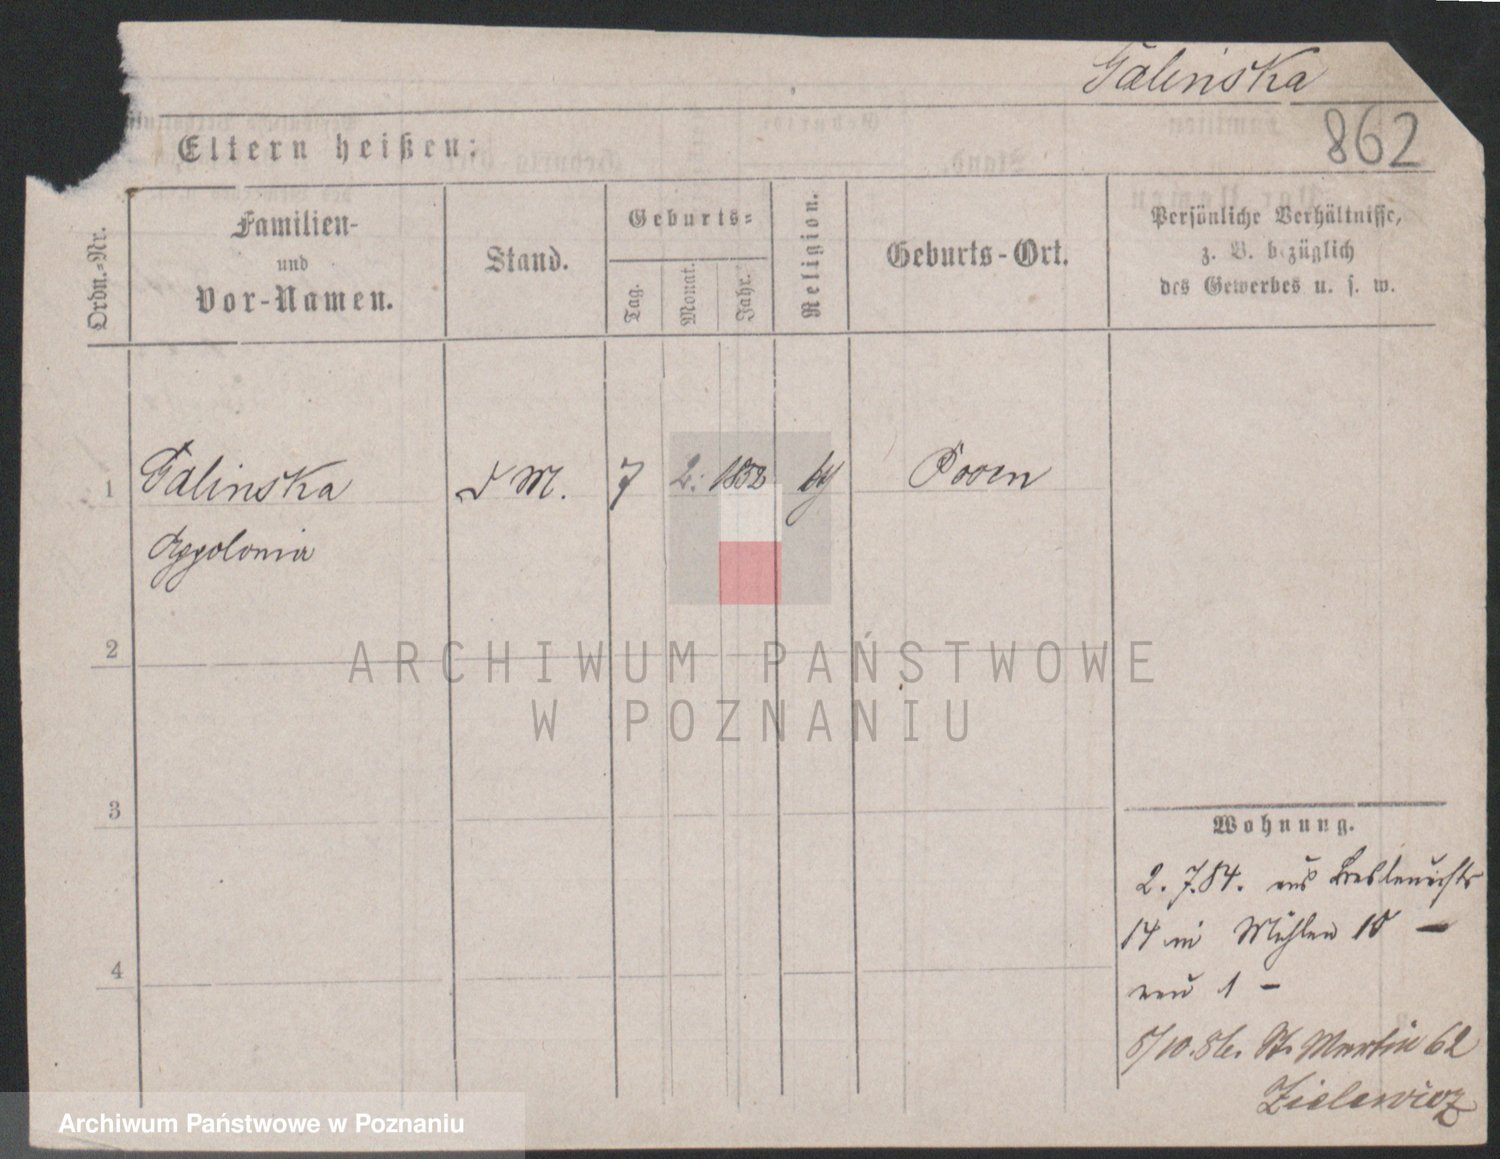 Galinska
862
Eltern heißen:
Ordn.-Nr.
Familien-
und
Vor-Namen.
Stand.
Geburts-
Tag.
Monat.
Jahr.
Religion.
Geburts-Ort.
Persönliche Verhältnisse,
z. B. bezüglich
des Gewerbes u. s. w.
1
Galinska
d M.
7
2.
1858
Posen
Appolonia
2
ARCHIWUM PAŃSTWOWE
W POZNANIU
3
Wohnung.
2. 7. 84. aus
14 in Mühlen 10 —
neu 1 —
4
5/10.86. St. Martin 62
Zielewicz
Archiwum Państwowe w Poznaniu